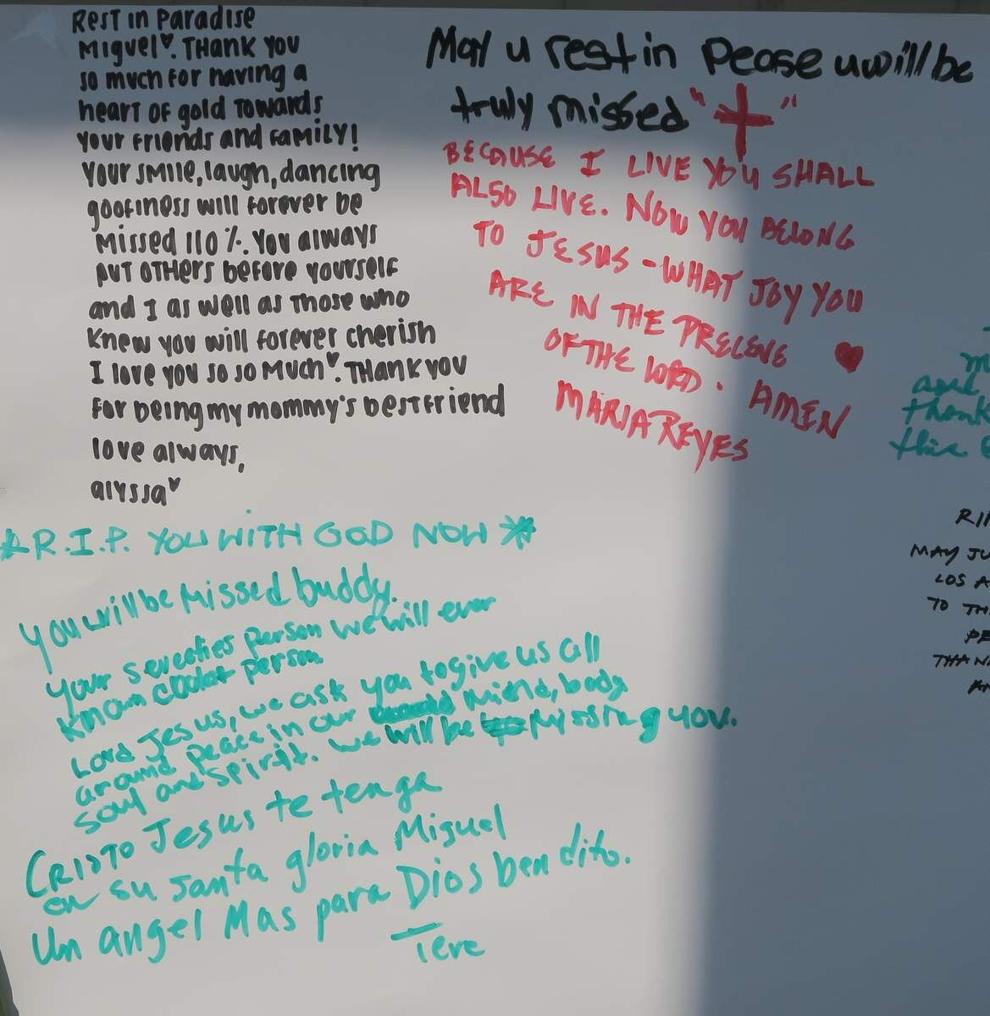 Rest in Paradise
Miguel♥. Thank you
so much for having a
heart of gold towards
your friends and family!
Your smile, laugh, dancing
goofiness will forever be
missed 110%. You always
put others before yourself
and I as well as those who
knew you will forever cherish
I love you so so much♥. Thank you
for being my mommy's bestfriend
love always,
alyssa♥
May u rest in Pease u will be
truly missed "+"
BECAUSE I LIVE YOU SHALL
ALSO LIVE. NOW YOU BELONG
TO JESUS - WHAT JOY YOU
ARE IN THE PRECENE
OF THE LORD. AMEN
MARIA REYES
R.I.P. YOU WITH GOD NOW
You will be missed buddy.
your sweeties person we will ever
known person
Lord Jesus, we ask you to give us all
around peace in our mind, body
soul and spirit. we will be missing you.
Cristo Jesus te tenga
en su santa gloria Miguel
Un angel Mas para Dios bendito.
Tere
thank
this
MAY JU
LOS A
TO TH
THAN